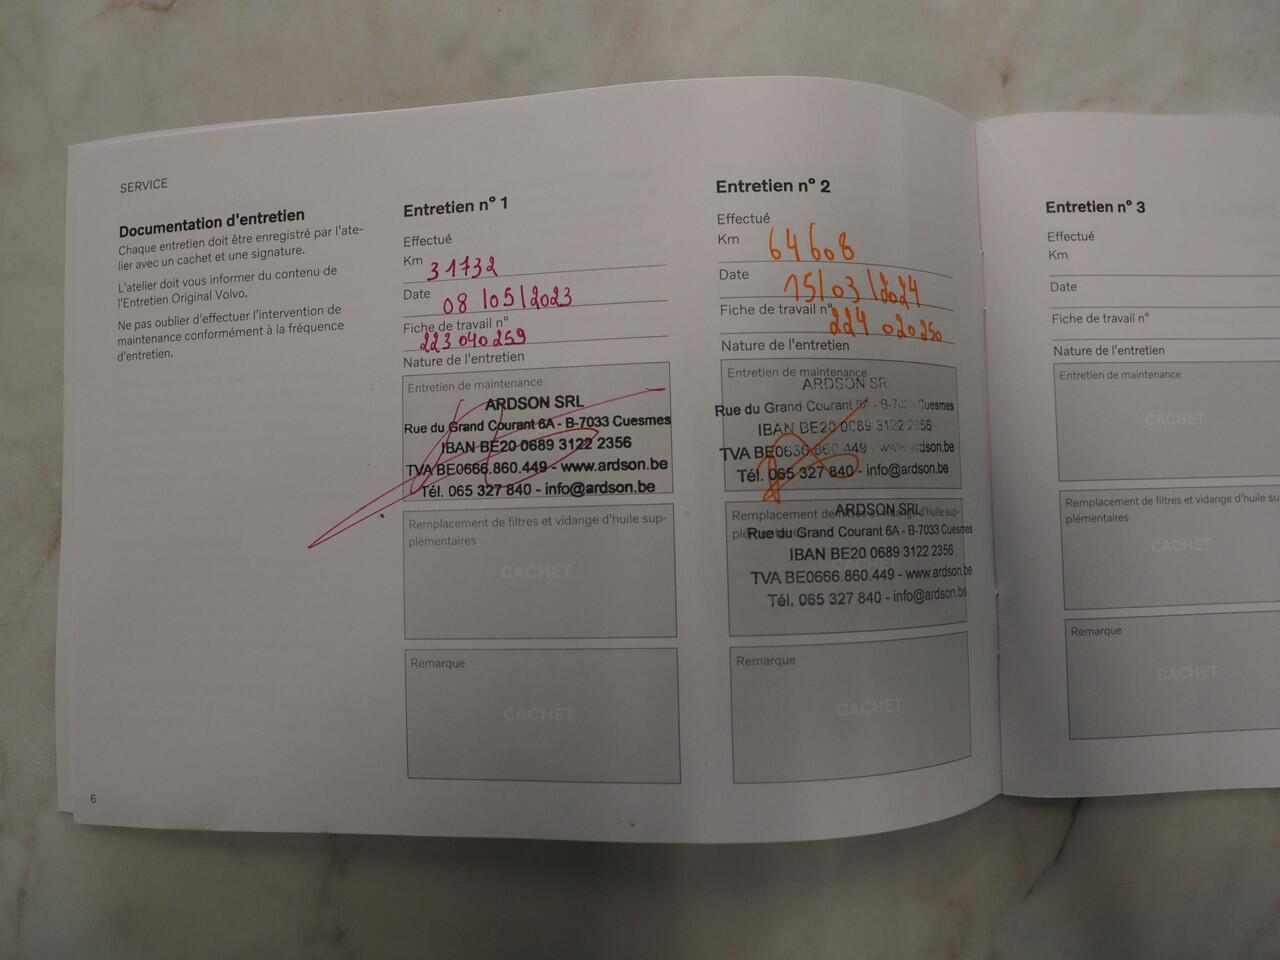 SERVICE
Documentation d'entretien
Chaque entretien doit être enregistré par l'ate-
lier avec un cachet et une signature.
L'atelier doit vous informer du contenu de
l'Entretien Original Volvo.
Ne pas oublier d'effectuer l'intervention de
maintenance conformément à la fréquence
d'entretien.
6
Entretien n° 1
Effectué
Km 31732
Date 08/05/2023
Fiche de travail n°
223 040 259
Nature de l'entretien
Entretien de maintenance
ARDSON SRL
Rue du Grand Courant 6A - B-7033 Cuesmes
IBAN BE20 0689 3122 2356
TVA BE0666.860.449 - www.ardson.be
Tél. 065 327 840 - info@ardson.be
Remplacement de filtres et vidange d'huile sup-
plémentaires
CACHET
Remarque
CACHET
Entretien n° 2
Effectué
Km 64608
Date 15/03/2024
Fiche de travail n°
224 020 250
Nature de l'entretien
Entretien de maintenance
ARDSON SR
Rue du Grand Courant 6A - B-7033 Cuesmes
IBAN BE20 0689 3122 2356
TVA 860.449 - www.ardson.be
Tél. 065 327 840 - info@ardson.be
Remplacement de filtres et vidange d'huile sup-
ARDSON SRL
Rue du Grand Courant 6A - B-7033 Cuesmes
IBAN BE20 0689 3122 2356
TVA BE0666.860.449 - www.ardson.be
Tél. 065 327 840 - info@ardson.be
Remarque
CACHET
Entretien n° 3
Effectué
Km
Date
Fiche de travail n°
Nature de l'entretien
Entretien de maintenance
CACHET
Remplacement de filtres et vidange d'huile su
plémentaires
CACHET
Remarque
CACHET